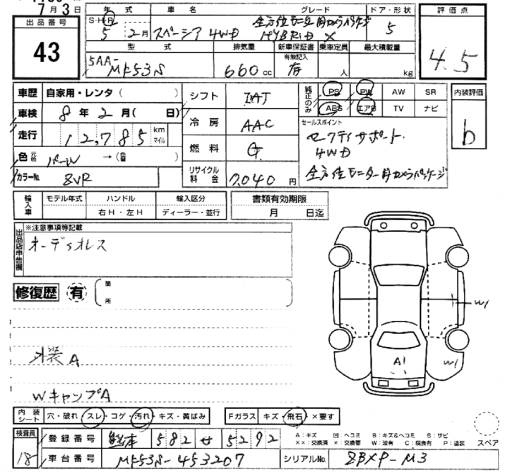 7月3日
出品番号 43
年式 車名 グレード ドア・形状
S・H・R 5年 2月 スペーシア 4WD 全方位モニター用カメラパッケージ HYBRID X 5
評価点 4.5
型式 排気量 新車保証書 乗車定員 最大積載量
5AA-MF53S 660cc 有無記入 有 人 kg
車歴 自家用・レンタ( )
車検 8年 2月( 日)
走行 12,785 km マイル
色 パールW →( )
カラーNo ZVR
シフト IAT
冷房 AAC
燃料 G
リサイクル料金 7,040円
純正のみ PS PW AW SR
ABS エアB TV ナビ
内装評価 b
セールスポイント
セーフティサポート
4WD
全方位モニター用カメラパッケージ
輸入車 モデル年式 ハンドル 輸入区分
年 右H・左H ディーラー・並行
書類有効期限
月 日迄
出品店申告欄 ※注意事項等記載
オーディオレス
修復歴 有 箇所
外装A
WキャンプA
A1
W1
W1
内装シート 穴・破れ スレ・コゲ・汚れ・キズ・黄ばみ
Fガラス キズ・飛石・×要す
検査員 18
登録番号 熊本 582 せ 5292
車台番号 MF53S-453207
A:キズ 凹:ヘコミ B:キズ&ヘコミ S:サビ
スペア
シリアルNo. ZBXP-M3